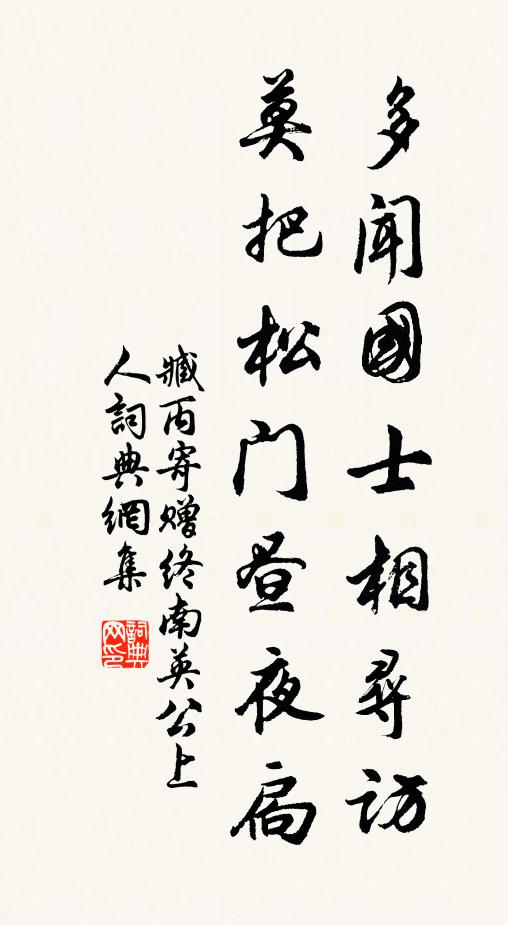 多聞國士相尋訪
莫把松门昼夜扃
臧丙寄赠终南英公上
人詞典網集
詞典
网印